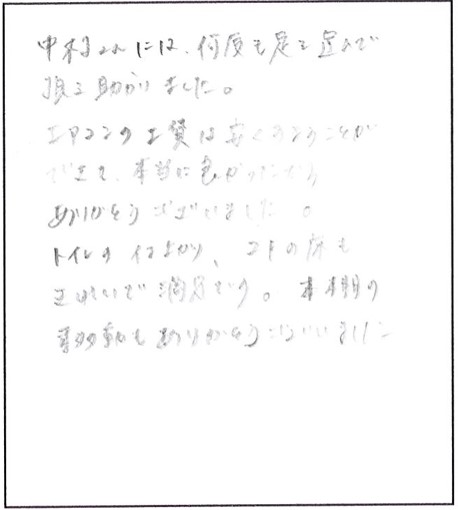 中村さんには、何度も足を運んで
頂き助かりました。
エアコンの工賃は安くのることが
できて、本当に良かったです
ありがとうございました。
トイレの、コトの方も
きれいで満足です。本棚の
移動もありがとうございました